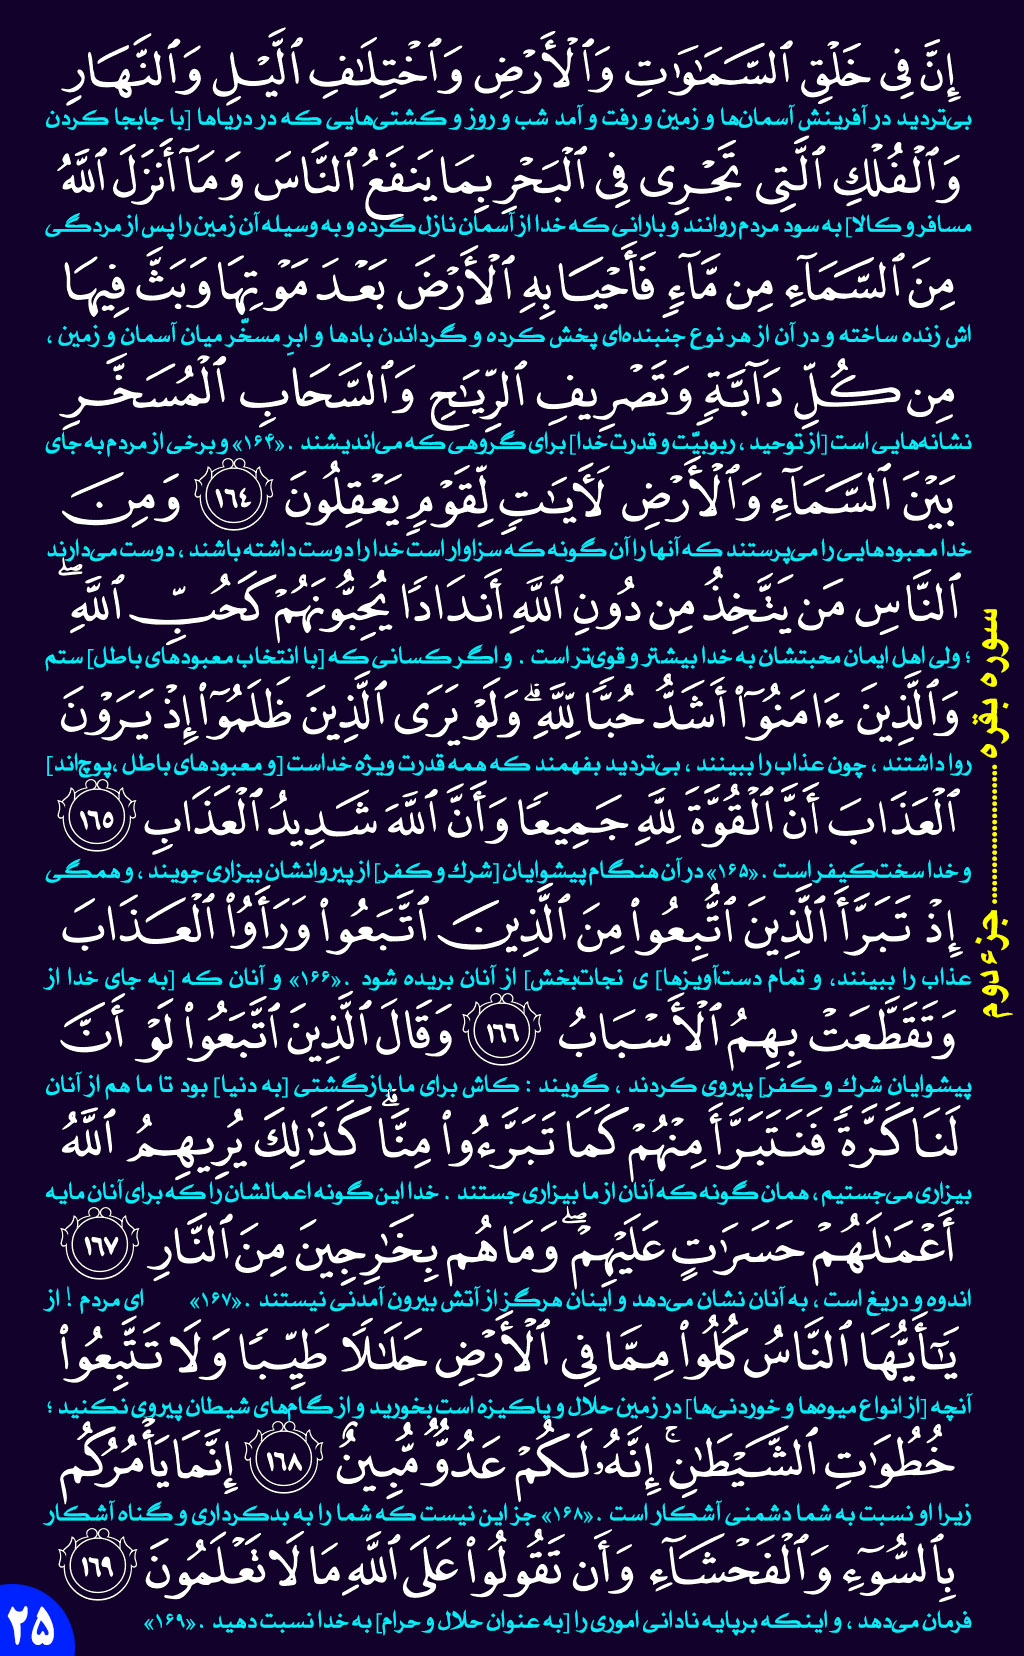 إِنَّ فِى خَلْقِ ٱلسَّمَـٰوَٰتِ وَٱلْأَرْضِ وَٱخْتِلَـٰفِ ٱلَّيْلِ وَٱلنَّهَارِ
بی‌تردید در آفرینش آسمان‌ها و زمین و رفت و آمد شب و روز و کشتی‌هایی که در دریاها [با جابجا کردن
وَٱلْفُلْكِ ٱلَّتِى تَجْرِى فِى ٱلْبَحْرِ بِمَا يَنفَعُ ٱلنَّاسَ وَمَآ أَنزَلَ ٱللَّهُ
مسافر و کالا] به سود مردم روانند و بارانی که خدا از آسمان نازل کرده و به وسیله آن زمین را پس از مردگی
مِنَ ٱلسَّمَآءِ مِن مَّآءٍ فَأَحْيَا بِهِ ٱلْأَرْضَ بَعْدَ مَوْتِهَا وَبَثَّ فِيهَا
اش زنده ساخته و در آن از هر نوع جنبنده‌ای پخش کرده و گرداندن بادها و ابرِ مسخّر میان آسمان و زمین ،
مِن كُلِّ دَآبَّةٍ وَتَصْرِيفِ ٱلرِّيَـٰحِ وَٱلسَّحَابِ ٱلْمُسَخَّرِ
نشانه‌هایی است [از توحید ، ربوبیّت و قدرت خدا] برای گروهی که می‌اندیشند . «۱۶۴» و برخی از مردم به جای
بَيْنَ ٱلسَّمَآءِ وَٱلْأَرْضِ لَـَٔايَـٰتٍ لِّقَوْمٍ يَعْقِلُونَ ١٦٤ وَمِنَ
خدا معبودهایی را می‌پرستند که آنها را آن گونه که سزاوار است خدا را دوست داشته باشند ، دوست می‌دارند
ٱلنَّاسِ مَن يَتَّخِذُ مِن دُونِ ٱللَّهِ أَندَادًا يُحِبُّونَهُمْ كَحُبِّ ٱللَّهِ ۖ
؛ ولی اهل ایمان محبتشان به خدا بیشتر و قوی‌تر است . و اگر کسانی که [با انتخاب معبودهای باطل] ستم
وَٱلَّذِينَ ءَامَنُوٓا۟ أَشَدُّ حُبًّا لِّلَّهِ ۗ وَلَوْ يَرَى ٱلَّذِينَ ظَلَمُوٓا۟ إِذْ يَرَوْنَ
روا داشتند ، چون عذاب را ببینند ، بی‌تردید بفهمند که همه قدرت ویژه خداست [و معبودهای باطل ،پوچ‌اند]
ٱلْعَذَابَ أَنَّ ٱلْقُوَّةَ لِلَّهِ جَمِيعًا وَأَنَّ ٱللَّهَ شَدِيدُ ٱلْعَذَابِ ١٦٥
و خدا سخت‌کیفر است . «۱۶۵» در آن هنگام پیشوایان [شرك و کفر] از پیروانشان بیزاری جویند ، و همگی
إِذْ تَبَرَّأَ ٱلَّذِينَ ٱتُّبِعُوا۟ مِنَ ٱلَّذِينَ ٱتَّبَعُوا۟ وَرَأَوُا۟ ٱلْعَذَابَ
عذاب را ببینند، و تمام دست‌آویزها] ی نجات‌بخش] از آنان بریده شود . «۱۶۶» و آنان که [به جای خدا از
وَتَقَطَّعَتْ بِهِمُ ٱلْأَسْبَابُ ١٦٦ وَقَالَ ٱلَّذِينَ ٱتَّبَعُوا۟ لَوْ أَنَّ
پیشوایان شرك و کفر] پیروی کردند ، گویند : کاش برای ما بازگشتی [به دنیا] بود تا ما هم از آنان
لَنَا كَرَّةً فَنَتَبَرَّأَ مِنْهُمْ كَمَا تَبَرَّءُوا۟ مِنَّا ۗ كَذَٰلِكَ يُرِيهِمُ ٱللَّهُ
بیزاری می‌جستیم ، همان گونه که آنان از ما بیزاری جستند . خدا این گونه اعمالشان را که برای آنان مایه
أَعْمَـٰلَهُمْ حَسَرَٰتٍ عَلَيْهِمْ ۖ وَمَا هُم بِخَـٰرِجِينَ مِنَ ٱلنَّارِ ١٦٧
اندوه و دریغ است ، به آنان نشان می‌دهد و اینان هرگز از آتش بیرون آمدنی نیستند . «۱۶۷» ای مردم ! از
يَـٰٓأَيُّهَا ٱلنَّاسُ كُلُوا۟ مِمَّا فِى ٱلْأَرْضِ حَلَـٰلًا طَيِّبًا وَلَا تَتَّبِعُوا۟
آنچه [از انواع میوه‌ها و خوردنی‌ها] در زمین حلال و پاکیزه است بخورید و از گام‌های شیطان پیروی نکنید ؛
خُطُوَٰتِ ٱلشَّيْطَـٰنِ ۚ إِنَّهُۥ لَكُمْ عَدُوٌّ مُّبِينٌ ١٦٨ إِنَّمَا يَأْمُرُكُم
زیرا او نسبت به شما دشمنی آشکار است . «۱۶۸» جز این نیست که شما را به بدکرداری و گناه آشکار
بِٱلسُّوٓءِ وَٱلْفَحْشَآءِ وَأَن تَقُولُوا۟ عَلَى ٱللَّهِ مَا لَا تَعْلَمُونَ ١٦٩
فرمان می‌دهد ، و اینکه برپایه نادانی اموری را [به عنوان حلال و حرام] به خدا نسبت دهید . «۱۶۹»
سوره بقره ........................ جزء دوم
۲۵